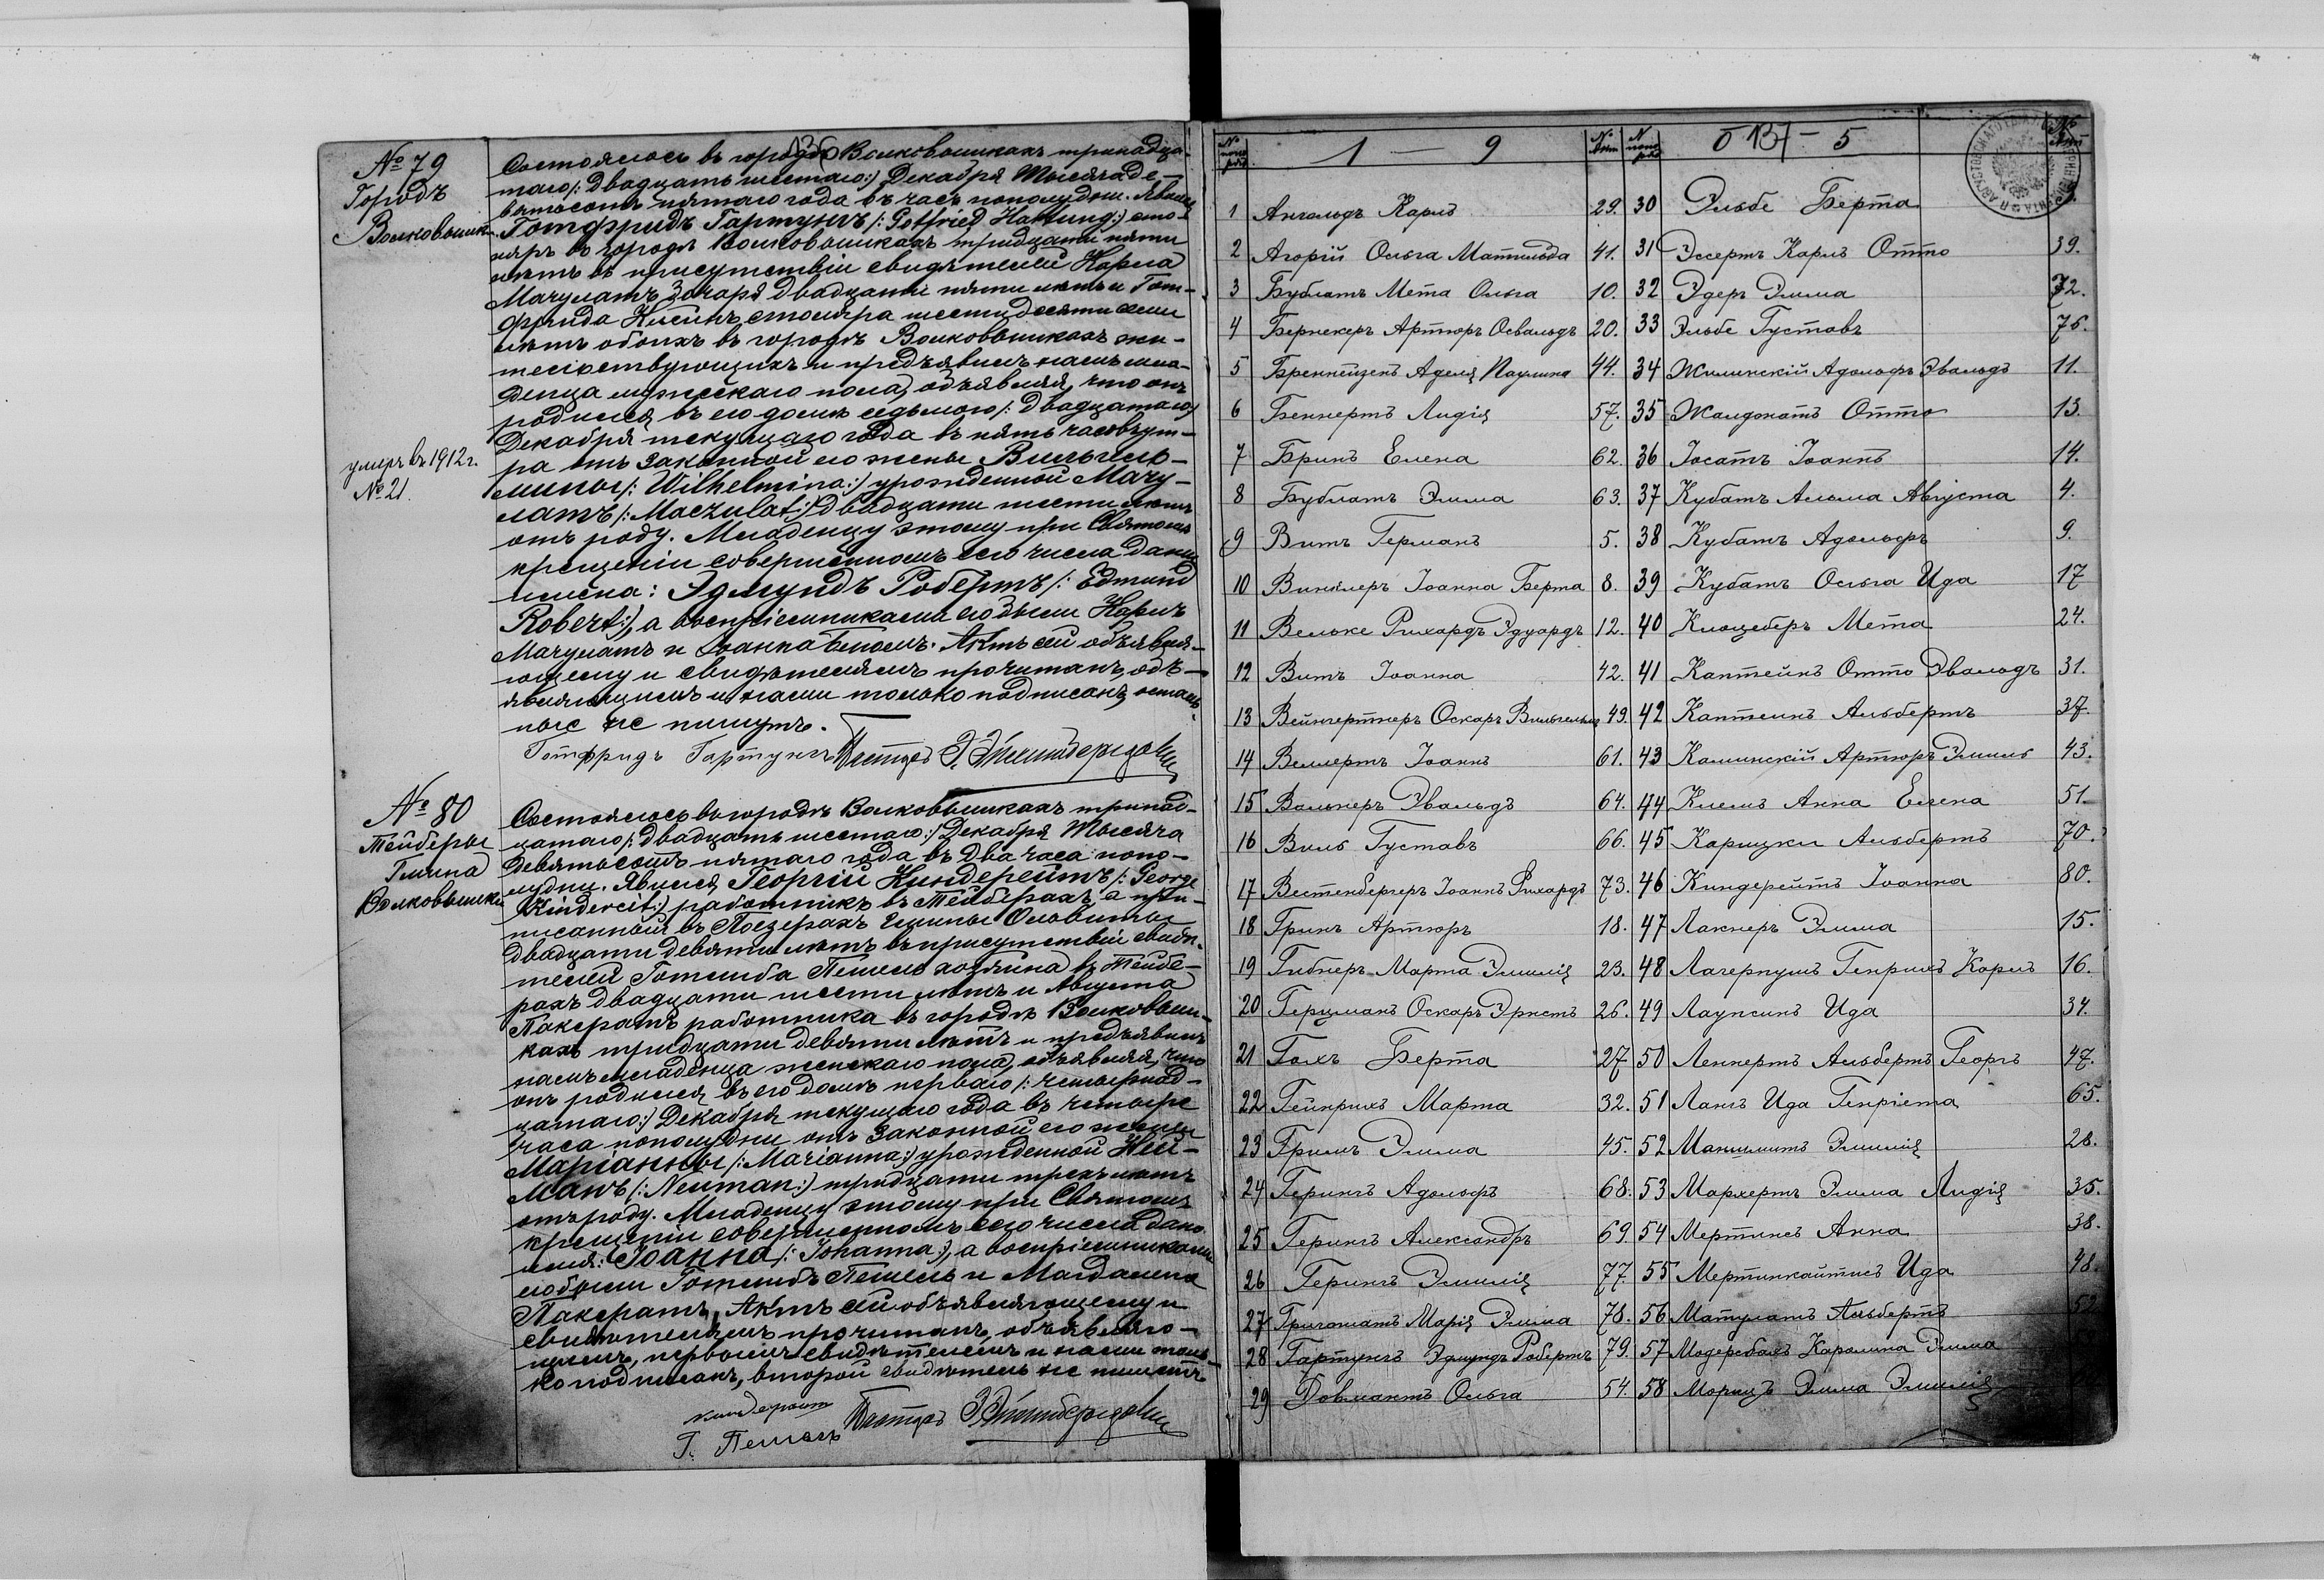 136
№ 79
Городъ
Волковышки
умеръ въ 1912 г.
№ 21.
Состоялось въ городѣ Волковышкахъ тринадца-
таго /: двадцать шестаго:/ Декабря Тысяча де-
вятьсотъ пятаго года въ часъ пополудни. Явился
Готфридъ Гартунгъ /: Gotfried Hartung:/ сто-
ляръ въ городѣ Волковышкахъ тридцати пяти
лѣтъ въ присутствіи свидѣтелей Карла
Мачулатъ двадцати пяти лѣтъ и Гот-
фрида столяра шестидесяти семи
лѣтъ обоихъ въ городѣ Волковышкахъ жи-
тельствующихъ и предъявилъ намъ мла-
денца мужескаго пола, объявляя, что онъ
родился въ его домѣ седьмого /: двадцатаго:/
Декабря текущаго года въ пять часовъ ут-
ра отъ законной его жены Вильгель-
мины /: Wilhelmina:/ урожденной Мачу-
латъ /: Maczulat:/ двадцати шести лѣтъ
отъ роду. Младенцу этому при Святомъ
крещеніи совершенномъ сего числа даны
имена: Эдмундъ Робертъ /: Edmund
Robert:/, а воспріемниками его были Карлъ
Мачулатъ и Іоанна Актъ сей объявля-
ющему и свидѣтелямъ прочитанъ, объ-
являющимъ и нами только подписанъ, осталь-
ные не пишутъ.
Готфридъ Гартунгъ Пасторъ
№ 80
Тейберы
Гмина
Волковышки
Состоялось въ городѣ Волковышкахъ тринад-
цатаго /: двадцать шестаго:/ Декабря Тысяча
девятьсотъ пятаго года въ два часа попо-
лудни. Явился Георгій Киндерейтъ /: George
Kindereit:/ работникъ въ Тейберахъ, а при-
писанный въ Поезерахъ Гмины Ольвиты
двадцати девяти лѣтъ въ присутствіи свидѣ-
телей Готлиба Пешель хозяина въ Тейбе-
рахъ двадцати шести лѣтъ и Августа
Пакератъ работника въ городѣ Волковыш-
кахъ тридцати девяти лѣтъ и предъявилъ
намъ младенца женскаго пола, объявляя, что
онъ родился въ его домѣ перваго /: четырнад-
цатаго:/ Декабря текущаго года въ четыре
часа пополудни отъ законной его жены
Маріанны /: Marianna:/ урожденной Ней-
манъ /: Neuman:/ тридцати трехъ лѣтъ
отъ роду. Младенцу этому при Святомъ
крещеніи совершенномъ сего числа дано
имя: Іоанна /: Johanna:/, а воспріемниками
его были Готлибъ Пешель и Магдалена
Пакератъ. Актъ сей объявляющему и
свидѣтелямъ прочитанъ, объявляю-
щимъ, первымъ свидѣтелемъ и нами толь-
ко подписанъ, второй свидѣтель не пишетъ.
Г. Пешель Пасторъ
1 — 9
1 Ангальдъ Карлъ 29.
2 Агорій Ольга Матильда 41.
3 Бублатъ Мета Ольга 10.
4 Бернекеръ Артюръ Освальдъ 20.
5 Бреннейзенъ Аделя Паулина 44.
6 Беннертъ Лидія 57.
7 Бринъ Елена 62.
8 Бублатъ Эмма 63.
9 Витъ Германъ 5.
10 Винклеръ Іоанна Берта 8.
11 Вельке Рихардъ Эдуардъ 12.
12 Витъ Іоанна 42.
13 Вейнгертнеръ Оскаръ Вильгельмъ 49.
14 Веллертъ Іоаннъ 61.
15 Валькеръ Эвальдъ 64.
16 Виль Густавъ 66.
17 Вестенбергеръ Іоаннъ Рихардъ 73.
18 Гринъ Артюръ 18.
19 Гибнеръ Марта Эмилія 23.
20 Герцманъ Оскаръ Эрнстъ 26.
21 Гохъ Берта 27
22 Гейнрихъ Марта 32.
23 Гримъ Эмма 45.
24 Герингъ Адольфъ 68.
25 Герингъ Александръ 69.
26 Герингъ Эмилія 77.
27 Григолатъ Марія Эмма 78.
28 Гартунгъ Эдмундъ Робертъ 79.
29 Довмантъ Ольга 54.
137
30 Эльбе Берта
31 Эссертъ Карлъ Отто 39.
32 Эдеръ Эмма 72.
33 Эльбе Густавъ 76.
34 Жилинскій Адольфъ Эвальдъ 11.
35 Жалдкатъ Отто 13.
36 Іосатъ Іоаннъ 14.
37 Кубатъ Альма Августа 4.
38 Кубатъ Адольфъ 9.
39 Кубатъ Ольга Ида 17
40 Клюцеберъ Мета 24.
41 Каптейнъ Отто Эвальдъ 31.
42 Каптеинъ Альбертъ 37.
43 Калинскій Артюръ Эмиль 43.
44 Клемъ Анна Елена 51.
45 Карицки Альбертъ 70.
46 Киндерейтъ Іоанна 80.
47 Лакнеръ Эмма 15.
48 Лагерпушъ Генрихъ Карлъ 16.
49 Лаупсинъ Ида 34.
50 Леннертъ Альбертъ Георгъ 47.
51 Лангъ Ида Генріета 65.
52 Эмилія 28.
53 Мархертъ Эмма Лидія 35.
54 Мертинсъ Анна 38.
55 Мертинкайтисъ Ида 48.
56 Матулатъ Альбертъ
57 Модерсбахъ Каролина Эмма
58 Морицъ Эмма Эмилія